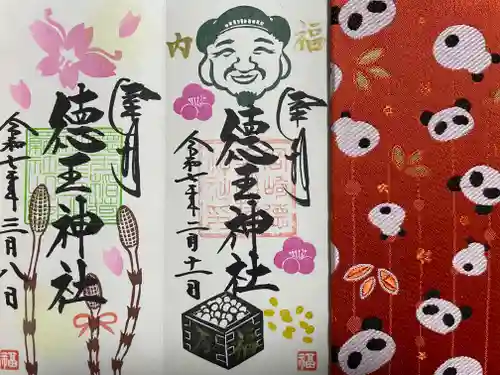 奉拝
徳王神社
令和七年三月八日
福
福
内
奉拝
徳王神社
令和七年二月十一日
福